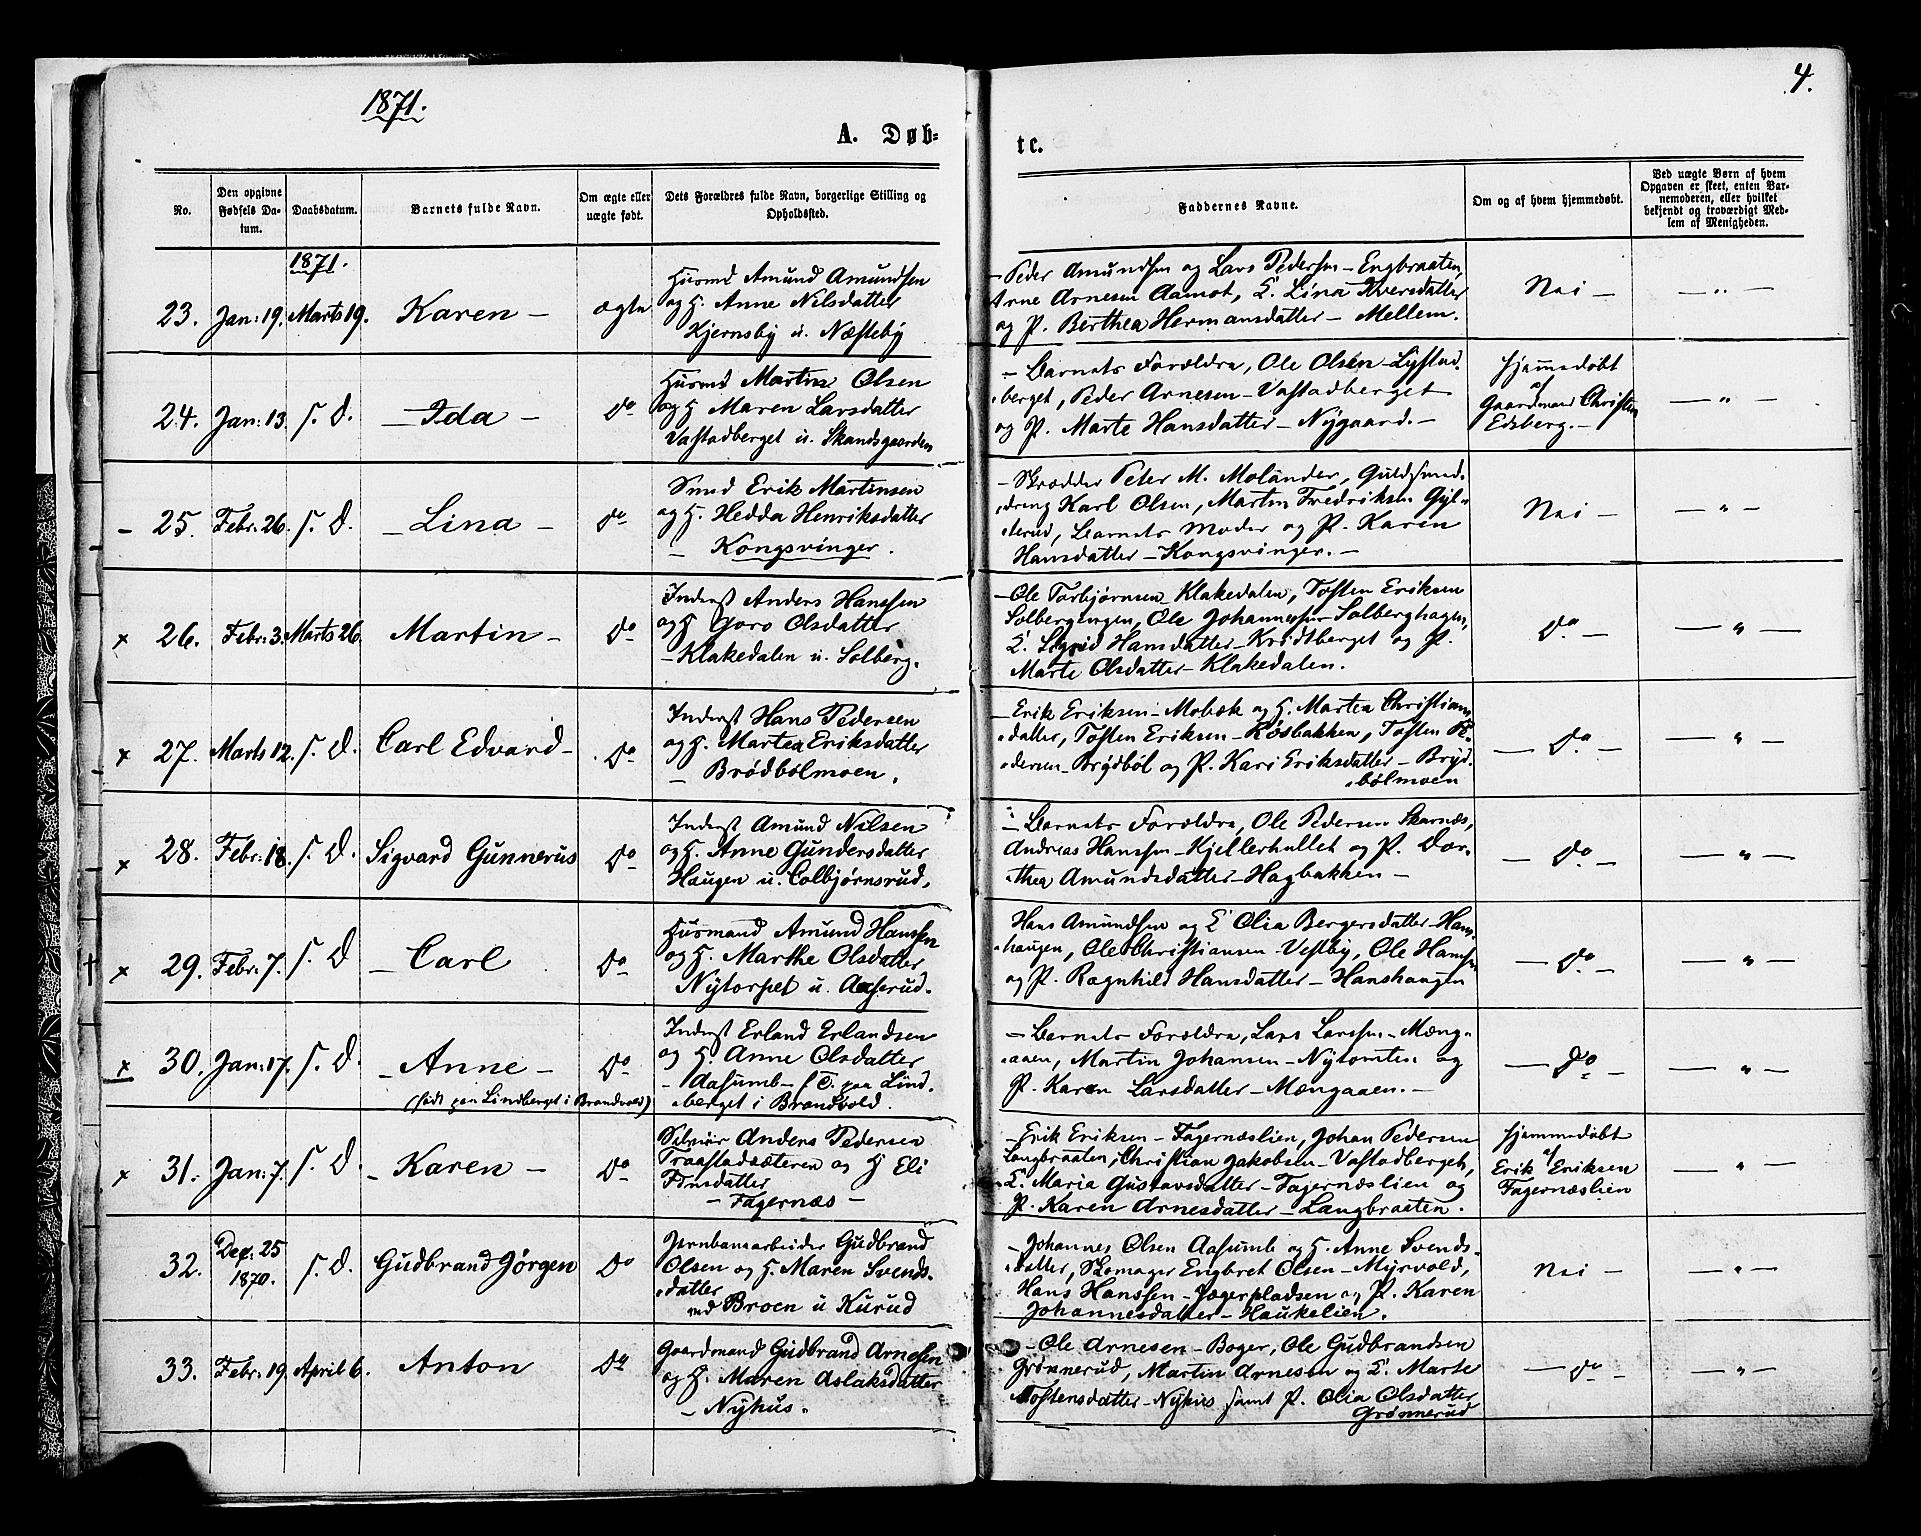 1871.
4.
A. Døb-
te.
No.
Den opgivne
Fødsels Da-
tum.
Daabsdatum.
Barnets fulde Navn.
Om ægte eller
uægte født.
Dets Forældres fulde Navn, borgerlige Stilling og
Opholdssted.
Faddernes Navne.
Om og af hvem hjemmedøbt.
Ved uægte Børn af hvem
Opgaven er skeet, enten Bar-
nemoderen, eller hvilket
bekjendt og troværdigt Med-
lem af Menigheden.
1871.
23. Jan: 19. Marts 19. Karen – ægte
Husmd Amund Amundsen
og H. Anne Nilsdatter
Kjernsby u. Næsteby
– Peder Amundsen og Lars Pedersen – Engbraaten,
Arne Arnesen Aamot, E. Lina Iversdatter
og P. Berthea Hermansdatter – Mellem.
Nei – — „ —
24. Jan: 13. S. D. – Ida – Do
Husmd Martin Olsen
og H. Maren Larsdatter
Vastadberget u. Skandsgaarden
– Barnets Forældre, Ole Olsen – Lystad-
berget, Peder Arnesen – Vastadberget
og P. Marte Hansdatter – Nygaard. –
Hjemmedøbt
af
Gaardmand Christen
Edsberg. –
— „ —
– 25. Febr: 26. S. D. – Lina – Do
Smed Erik Martinsen
og H. Hedda Henriksdatter
– Kongsvinger.
– Skrædder Peter M. Molander, Guldsmed-
dreng Karl Olsen, Martin Fredriksen Gyl-
derud, Barnets Moder og P. Karen
Hansdatter – Kongsvinger. –
Nei – — „ —
x 26. Febr: 3. Marts 26. Martin – Do
Inderst Anders Hanssen
og H Goro Olsdatter
– Klakedalen u. Solberg.
– Ole Torbjørnsen Klakedalen, Tosten Eriksen
Solbergengen, Ole Johannessen Solberghagen,
E. Sigrid Hansdatter – Kridtberget og P.
Marte Olsdatter – Klakedalen.
Do – — „ —
x 27. Marts 12. S. D. Carl Edvard – Do
Inderst Hans Pedersen
og H. Martea Eriksdatter
– Brødbølmoen.
– Erik Eriksen – Mobæk og H. Martea Christians-
datter, Tosten Eriksen – Røsbakken, Tosten P-
edersen – Brydbøl og P. Kari Eriksdatter – Bryd-
bølmoen
— Do — — „ —
x 28. Febr: 18. S. D. Sigvard Gunnerus Do
Inderst Amund Nilsen
og H. Anne Gundersdatter
Haugen u. Colbjørnsrud.
– Barnets Forældre, Ole Pedersen Skarnæs,
Andreas Hanssen – Kjellerhullet og P. Dor-
thea Amundsdatter – Hagbakken –
— Do — — „ —
x 29. Febr: 7. S. D – Carl Do
Husmand Amund Hanssen
og H. Marthe Olsdatter
Nytorpet u. Aaserud.
Hans Amundsen og E Olia Bergersdatter – Hans-
haugen, Ole Christiansen – Vestby, Ole Hanssen
og P. Ragnhild Hansdatter – Hanshaugen
— Do — — „ —
x 30. Jan: 17. S. D. – Anne – Do
(født paa Lindberget i Brandvold)
Inderst Erland Erlandsen
og H. Anne Olsdatter
– Aasumb – f. T. paa Lind-
berget i Brandvold.
– Barnets Forældre, Lars Larssen – Mæng-
aaen, Martin Johansen – Nytomten og
P. Karen Larsdatter – Mængaaen. –
— Do — — „ —
x 31. Jan: 7. S. D. – Karen – Do
Selveier Anders Pedersen
Traastadsæteren og H Eli
Finsdatter
– Fagernæs –
– Erik Eriksen – Fagernæslien, Johan Pedersen
Langbraaten, Christian Jakobsen – Vastadberget,
E. Maria Gustavsdatter – Fagernæslien og
P. Karen Arnesdatter – Langbraaten.
Hjemmedøbt
af
Erik Eriksen
Fagernæslien
— „ —
32. Dec: 25
1870. S. D. Gudbrand Jørgen Do
Jernbanearbeider Gudbrand
Olsen og H. Maren Svends-
datter
ved Broen u Kurud
– Johannes Olsen Aasumb og H. Anne Svends-
datter, Skomager Engbret Olsen – Myrvold,
Hans Hanssen – Jægerpladsen og P. Karen
Johannesdatter – Haukelien.
Nei – — „ —
33. Febr: 19. April 6. Anton Do
Gaardmand Gudbrand Arnesen
og H. Maren Aslaksdatter
– Nyhus.
– Ole Arnesen – Boger, Ole Gudbrandsen
Grønnerud, Martin Arnesen og E. Marte
Tostensdatter – Nyhus samt P. Olia Olsdatter
Grønnerud
— do — — „ —